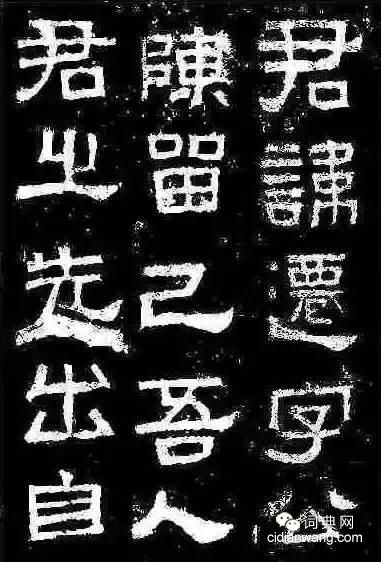 君諱遷字公
陳留己吾人
君之先出自
词典网
cidianwang.com